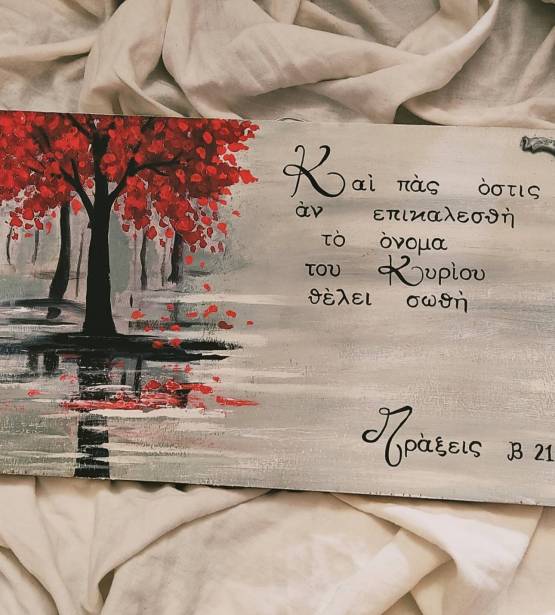 Καὶ πὰς ὸστις
ὰν επικαλεσθὴ
τὸ ὸνομα
του Κυρὶου
θὲλει σωθὴ
Πρὰξεις Β 21